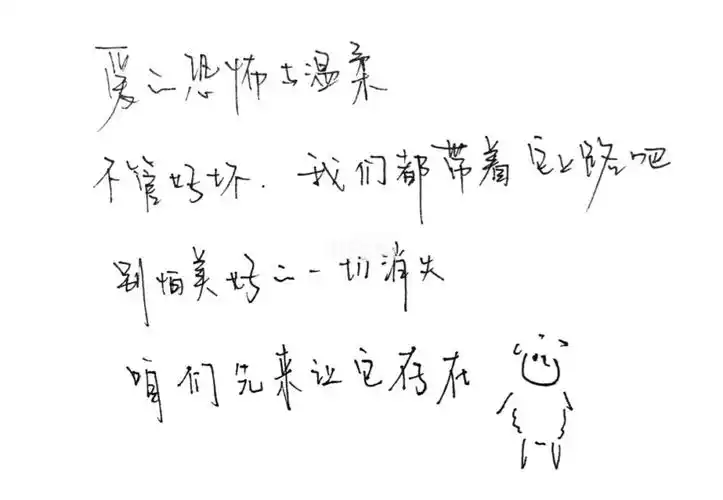 爱的恐怖与温柔
不管好坏.我们都带着它上路吧
别怕美好的一切消失
咱们先来让它存在